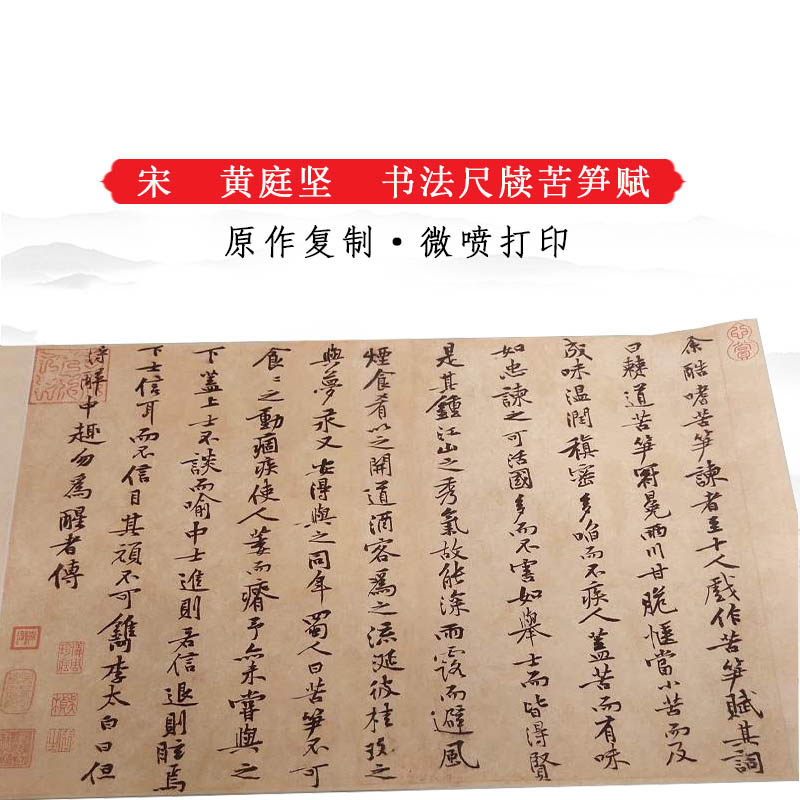 宋 黄庭坚 书法尺牍苦笋赋
原作复制·微喷打印
余酷嗜苦笋諫者至十人戲作苦笋賦其詞
曰僰道苦笋冠冕兩川甘脆愜當小苦而及
成味温潤稹密多啗而不疾人蓋苦而有味
如忠諫之可活國多而不害如舉士而皆得賢
是其鍾江山之秀氣故能深雨露而避風
煙食肴以之開道酒客為之流涎彼桂玫之
與夢汞又安得與之同年蜀人曰苦笋不可
食〻之動痼疾使人萎而瘠予亦未嘗與之
下蓋上士不談而喻中士進則若信退則眩焉
下士信耳而不信目其頑不可鐫李太白曰但
得醉中趣勿為醒者傳